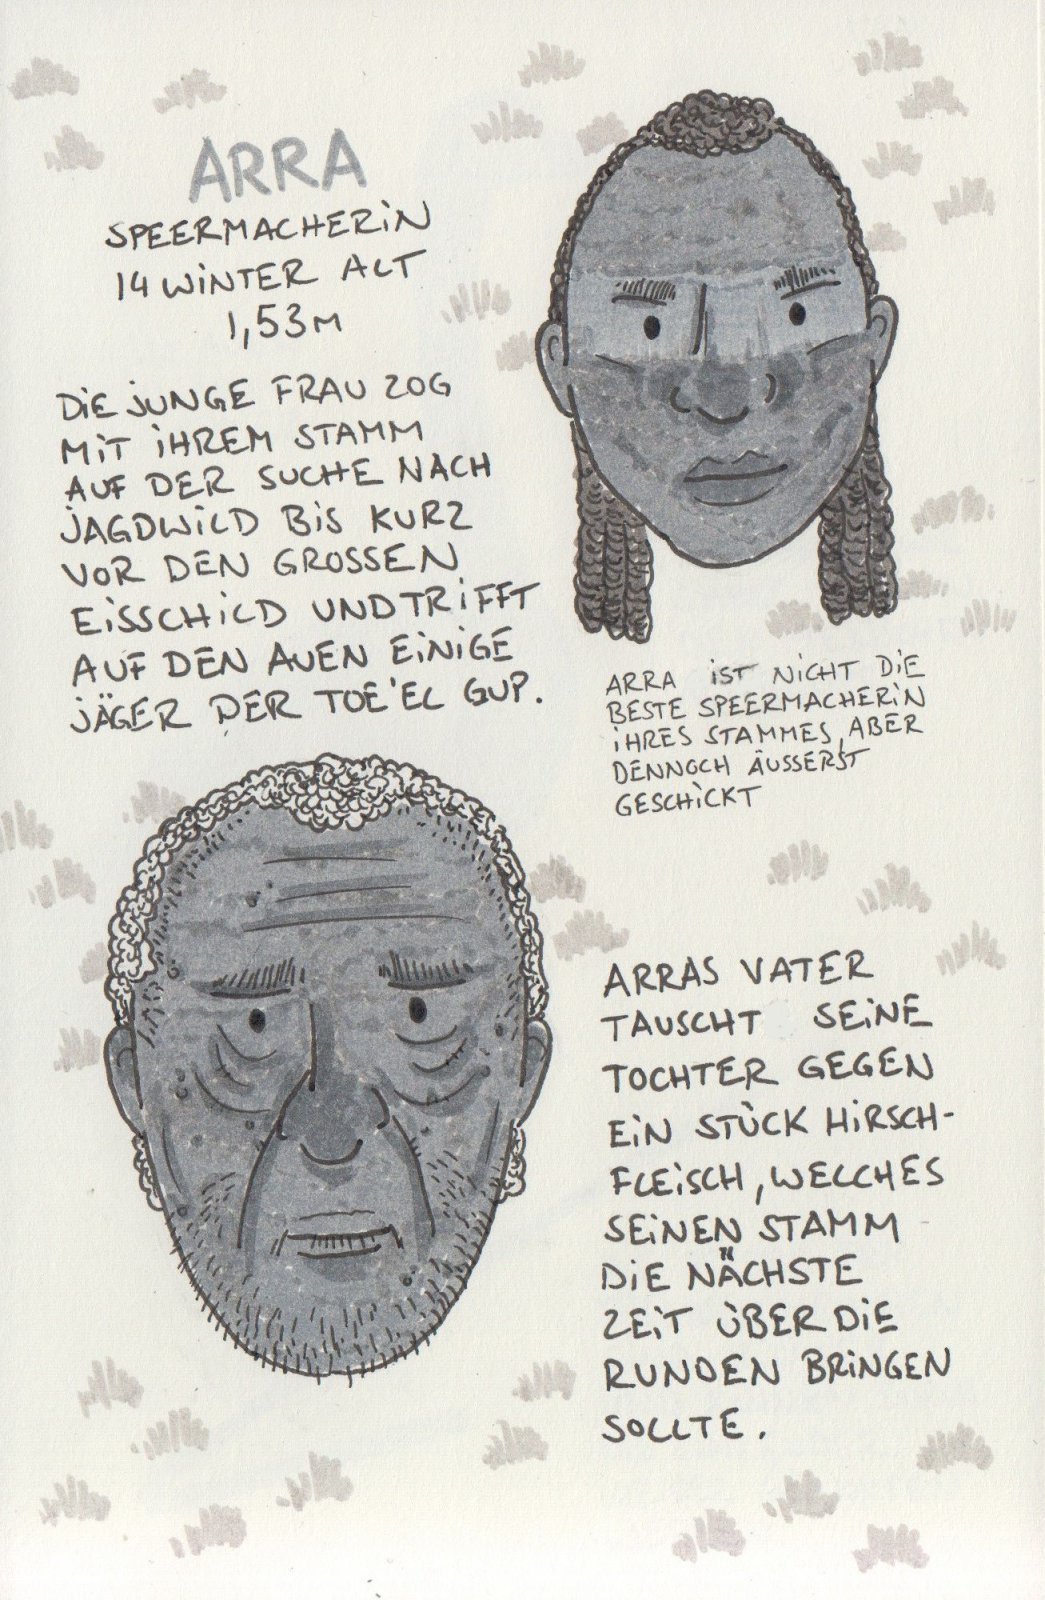 ARRA
SPEERMACHERiN
14 WiNTER ALT
1,53M
DiE JUNGE FRAU ZOG
MiT iHREM STAMM
AUF DER SUCHE NACH
JAGDWiLD BiS KURZ
VOR DEN GROSSEN
EiSSCHiLD UND TRiFFT
AUF DEN AUEN EiNiGE
JÄGER DER TOE'EL GUP.
ARRA iST NiCHT DiE
BESTE SPEERMACHERiN
iHRES STAMMES, ABER
DENNOCH ÄUSSERST
GESCHiCKT
ARRAS VATER
TAUSCHT SEiNE
TOCHTER GEGEN
EiN STÜCK HiRSCH-
FLEiSCH, WELCHES
SEiNEN STAMM
DiE NÄCHSTE
ZEiT ÜBER DiE
RUNDEN BRiNGEN
SOLLTE.